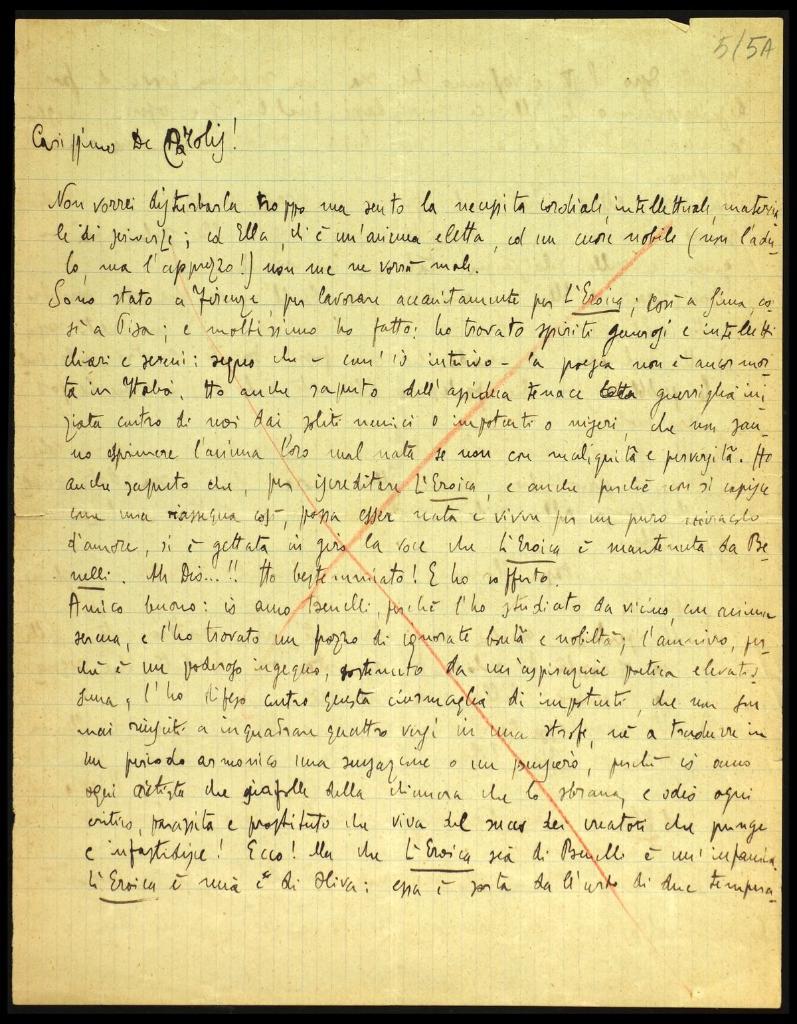 5/5A
Carissimo De Carolis!
Non vorrei disturbarla troppo ma sento la necessità cordiale, intellettuale, materia-
le di scriverle; ed Ella, ch'è un'anima eletta, ed un cuore nobile (non l'adu-
lo, ma l'apprezzo!) non me ne vorrà male.
Sono stato a Firenze, per lavorare accanitamente per L'Eroica; così a Siena, co-
sì a Pisa; e moltissimo ho fatto: ho trovato spiriti generosi e intelletti
chiari e sereni: segno che – com' io intuivo – la poesia non è ancor mor-
ta in Italia. Ho anche saputo dell'assidua tenace guerriglia ini-
ziata contro di noi dai soliti nemici o impotenti o miseri, che non san-
no esprimere l'anima loro mal nata se non con malignità e perversità. Ho
anche saputo che, per iscreditare L'Eroica, e anche perchè non si capisce
come una rassegna così, possa esser nata e vivere per un puro miracolo
d'amore, si è gettata in giro la voce che L'Eroica è mantenuta da Be-
nelli. Ah Dio...!! Ho bestemmiato! E ho sofferto.
Amico buono: io amo Benelli, perchè l'ho studiato da vicino, con anima
serena, e l'ho trovato un pozzo di ignorate bontà e nobiltà; l'ammiro, per-
chè è un poderoso ingegno, sostenuto da un'aspirazione poetica elevatis-
sima, l'ho difeso contro questa ciurmaglia di impotenti, che non son
mai riusciti a inquadrare quattro versi in una strofe, nè a tradurre in
un periodo armonico una sensazione o un pensiero, perchè io amo
ogni artista che della chimera che lo sbrana, e odio ogni
critico, parassita e prostituto che viva del succo dei creatori che punge
e infastidisce! Ecco! Ma che L'Eroica sia di Benelli è un'infamia.
L'Eroica è mia e di Oliva: essa è sorta da l'urto di due tempera-